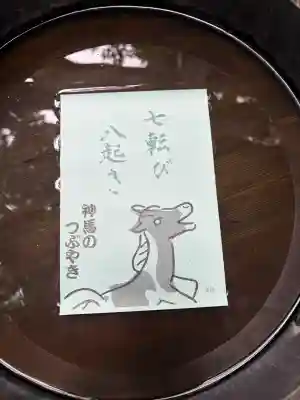 七転び
八起き。
神馬の
つぶやき